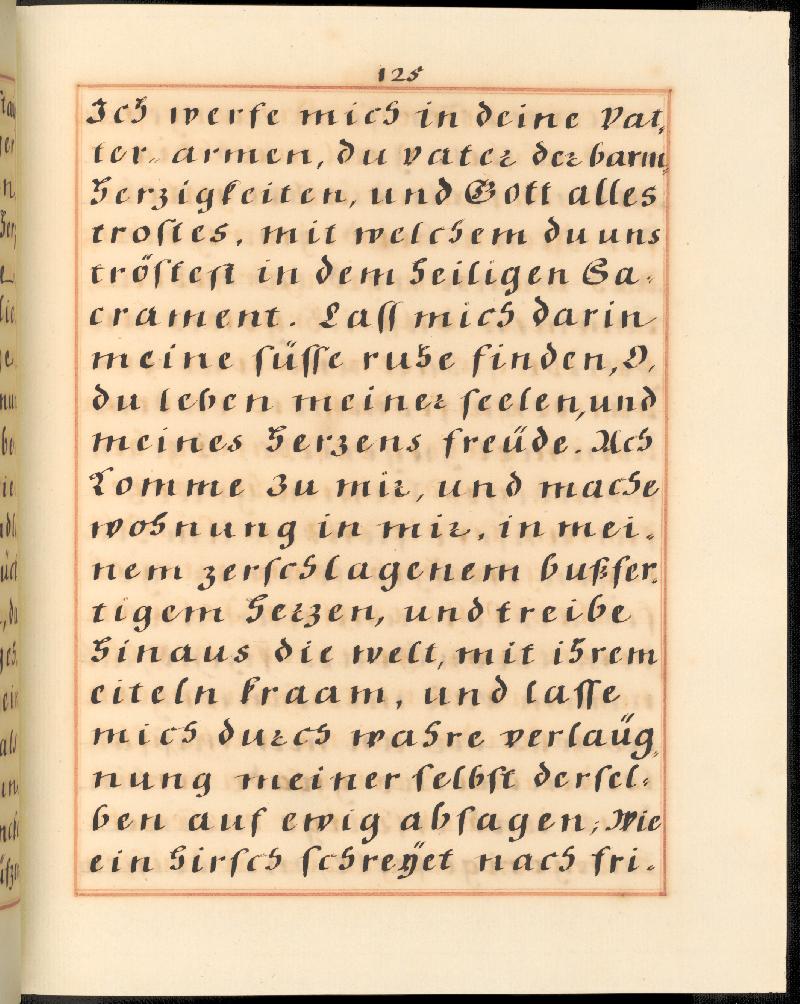 125
Ich werfe mich in deine Vat-
ter-armen, du vater der barm-
herzigkeiten, und Gott alles
trostes, mit welchem du uns
tröstest in dem heiligen Sa-
crament. Lass mich darin
meine süsse ruhe finden, O,
du leben meiner seelen, und
meines herzens freüde. Ach
komme zu mir, und mache
wohnung in mir, in mei-
nem zerschlagenem bußfer-
tigem herzen, und treibe
hinaus die welt, mit ihrem
eiteln kraam, und lasse
mich durch wahre verlaüg-
nung meiner selbst dersel-
ben auf ewig absagen; Wie
ein hirsch schreÿet nach fri-